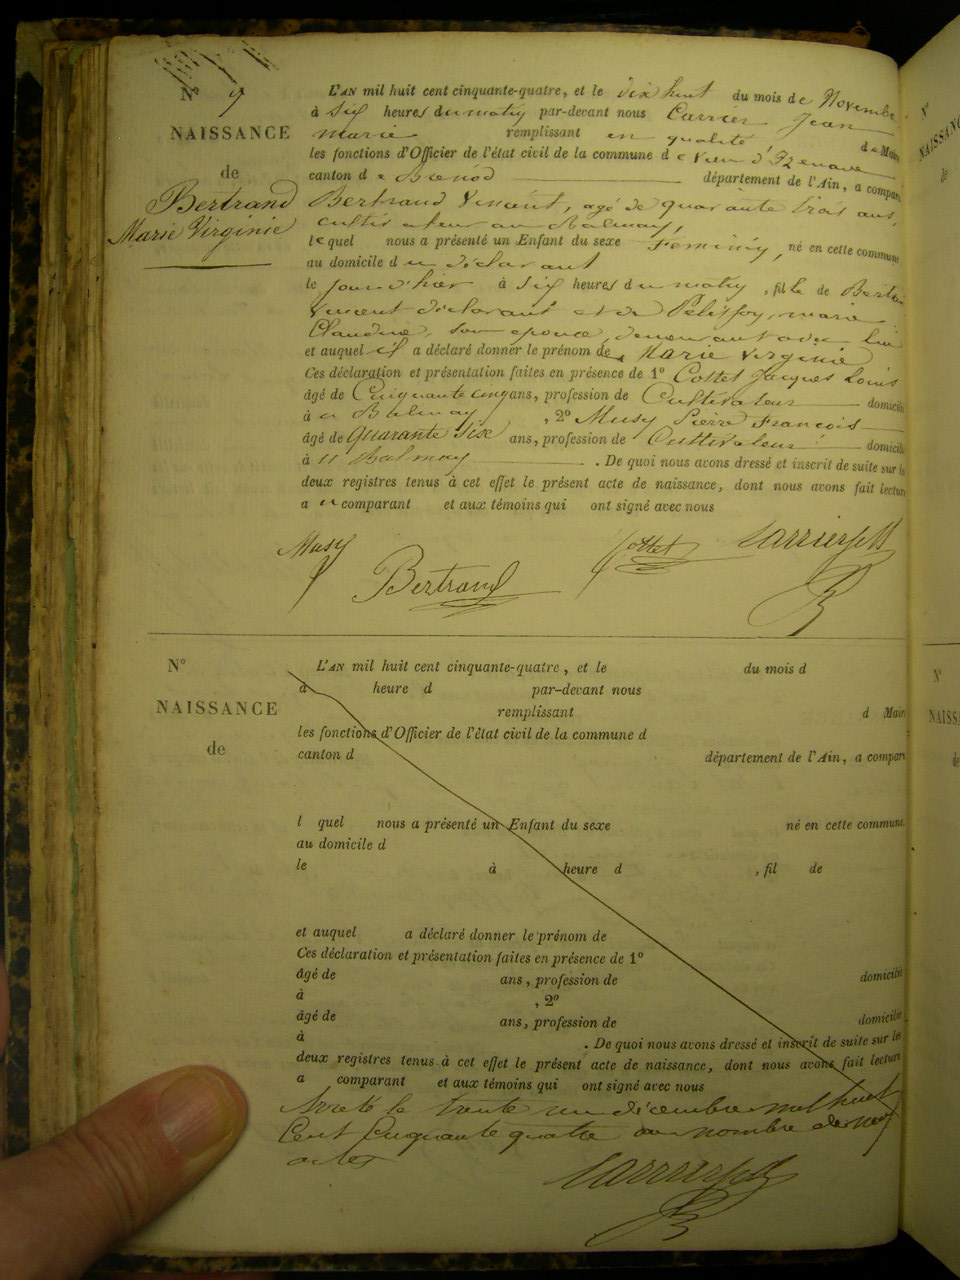 N° 9
NAISSANCE
de
Bertrand
Marie Virginie
L'AN mil huit cent cinquante-quatre, et le dix huit du mois de Novembre
à six heures du matin par-devant nous Carrier Jean
marie remplissant en qualité de Maire
les fonctions d'Officier de l'état civil de la commune de Vieu d'Izenave
canton de Brénod département de l'Ain, a comparu
Bertrand Vincent, agé de quarante trois ans,
cultivateur au Balmay,
lequel nous a présenté un Enfant du sexe Feminin, né en cette commune
au domicile du déclarant
le jour d'hier à six heures du matin, fille de Bertrand
Vincent déclarant et de Pelissoy, marie
Claudine, son epouce, demeurant avec lui
et auquel il a déclaré donner le prénom de Marie Virginie
Ces déclaration et présentation faites en présence de 1° Cottet Jacques Louis
âgé de Cinquante cinq ans, profession de Cultivateur domicilié
à u Balmay, 2° Musy Pierre François
âgé de quarante Sixe ans, profession de Cultivateur domicilié
à u Balmay. De quoi nous avons dressé et inscrit de suite sur les
deux registres tenus à cet effet le présent acte de naissance, dont nous avons fait lecture
a u comparant et aux témoins qui ont signé avec nous
Musy Bertrand Cottet Carrier
N°
NAISSANCE
de
L'AN mil huit cent cinquante-quatre, et le du mois d
à heure d par-devant nous
remplissant d Maire
les fonctions d'Officier de l'état civil de la commune d
canton d département de l'Ain, a comparu
l quel nous a présenté un Enfant du sexe né en cette commune,
au domicile d
le à heure d , fil de
et auquel a déclaré donner le prénom de
Ces déclaration et présentation faites en présence de 1°
âgé de ans, profession de domicilié
à , 2°
âgé de ans, profession de domicilié
à . De quoi nous avons dressé et inscrit de suite sur les
deux registres tenus à cet effet le présent acte de naissance, dont nous avons fait lecture
a comparant et aux témoins qui ont signé avec nous
Arreté le trente un decembre mil huit
Cent Cinquante quatre au nombre de neuf
actes
Carrier
N°
NAISSANCE
de
N°
NAISSA
de